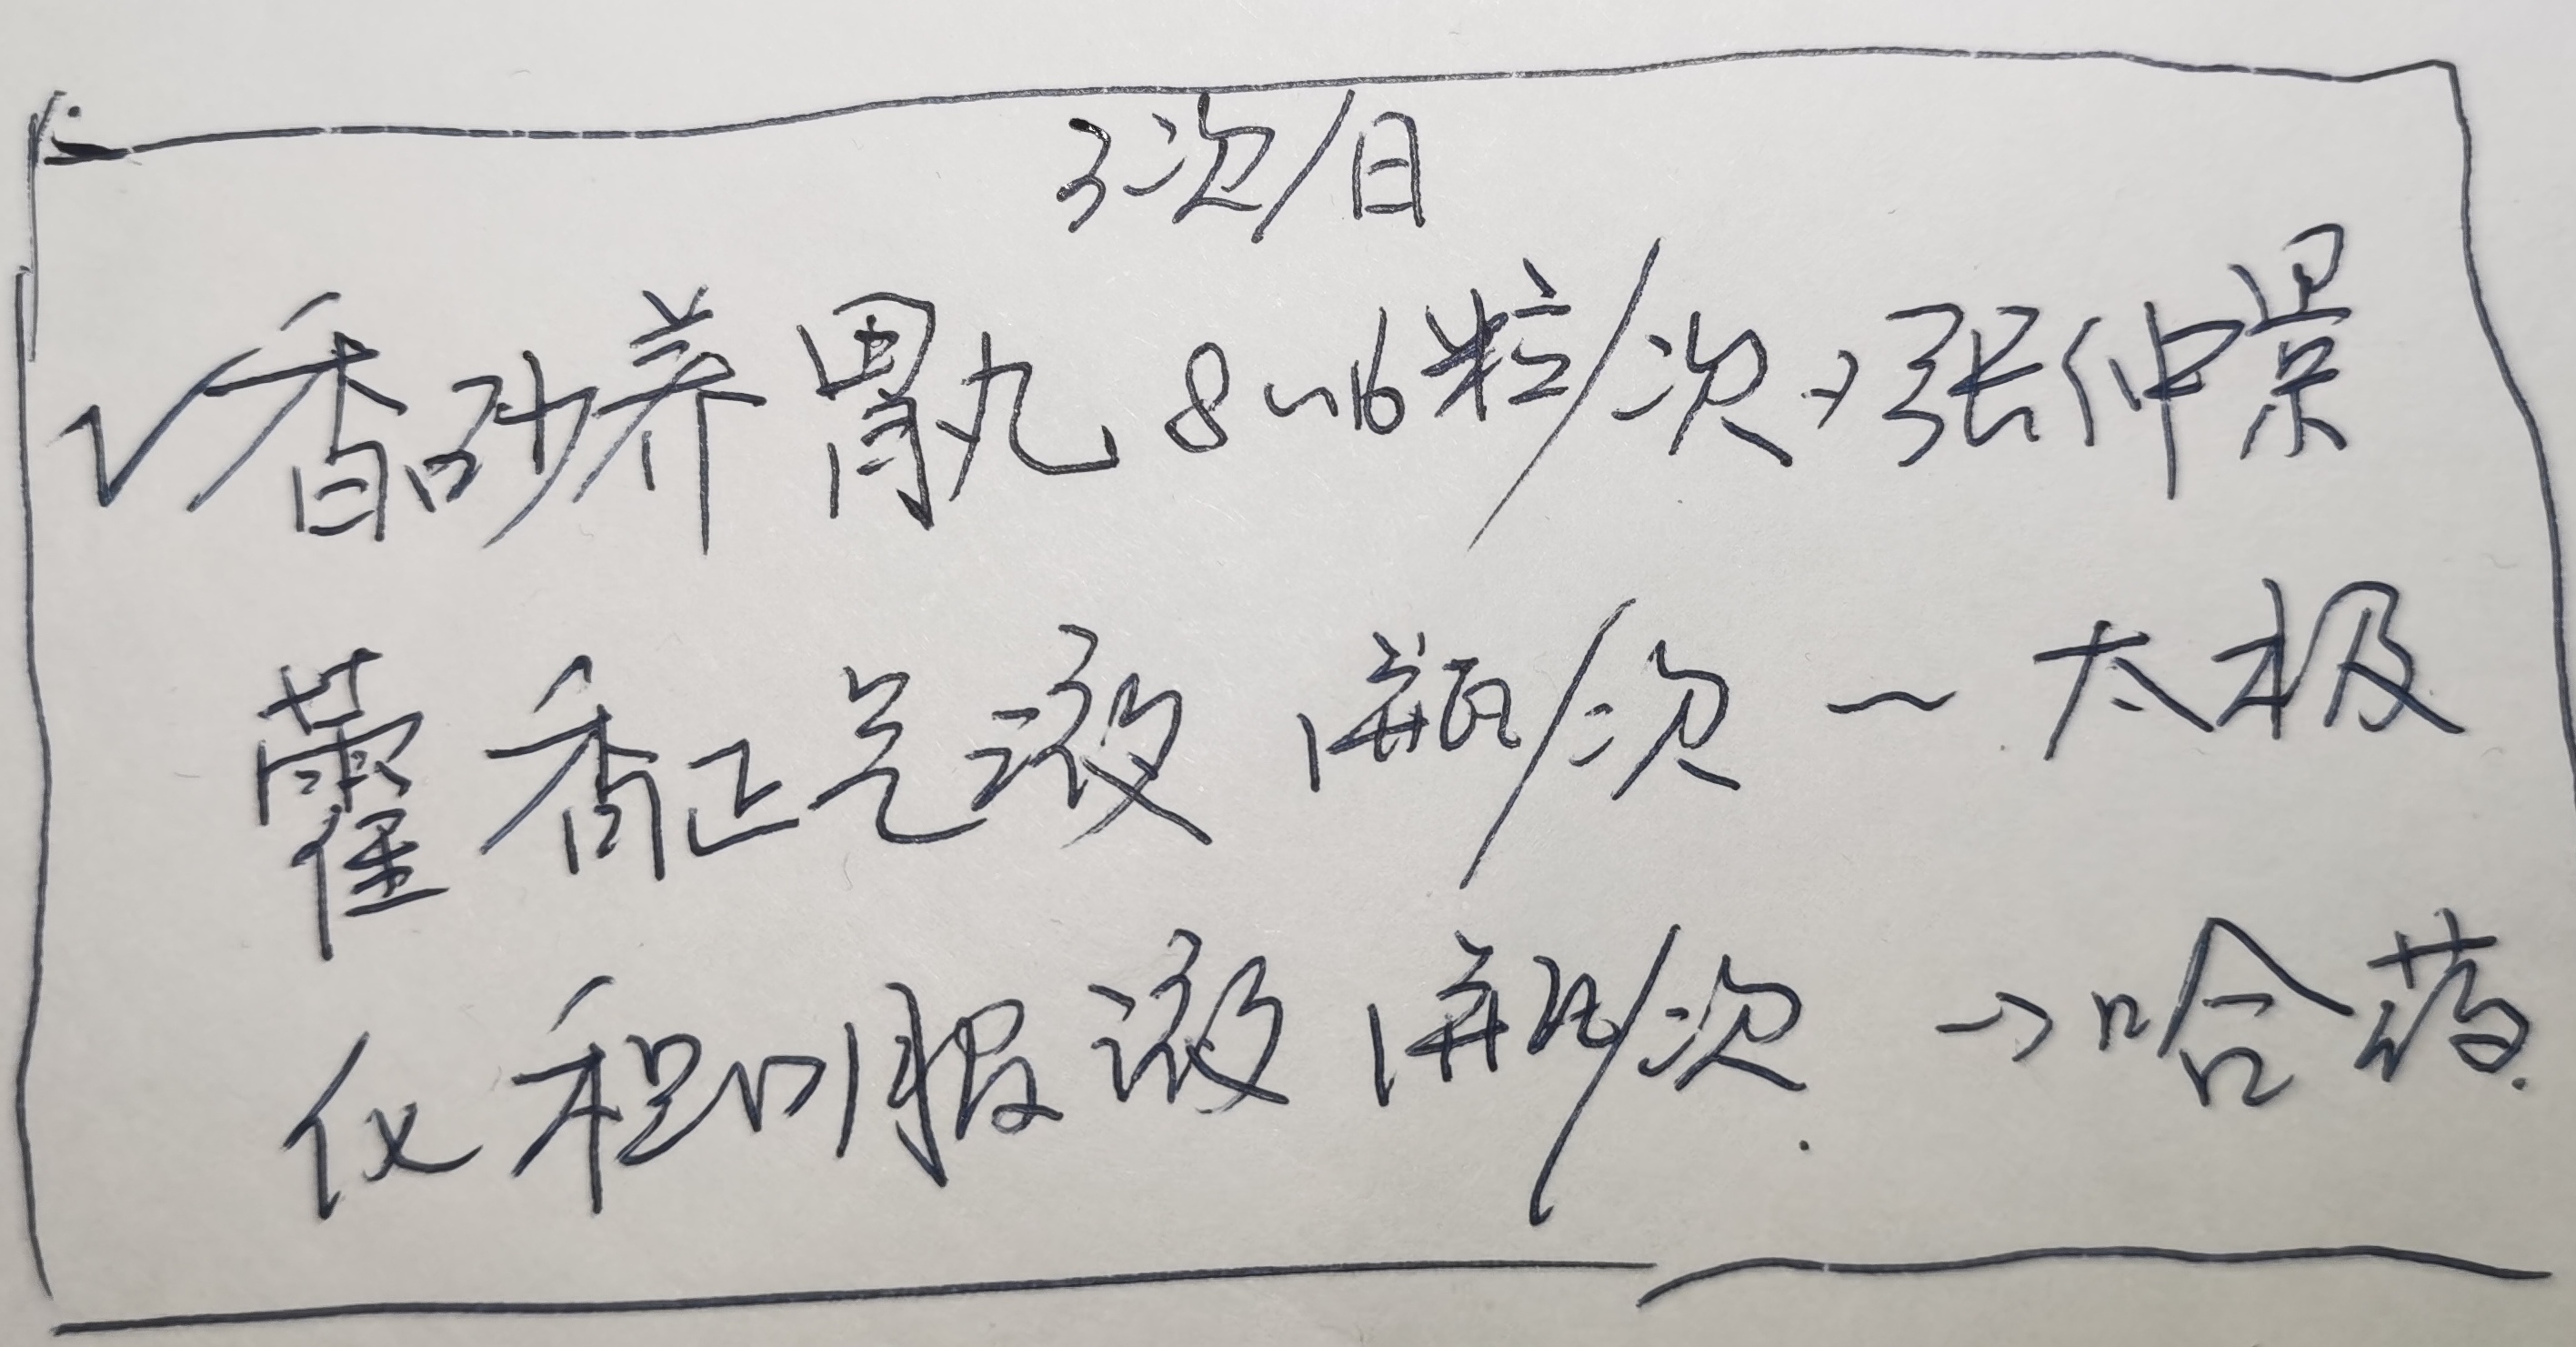 3次/日
√香砂养胃丸 8~16粒/次→张仲景
藿香正气液 1瓶/次 — 太极
化积口服液 1瓶/次. →哈药.